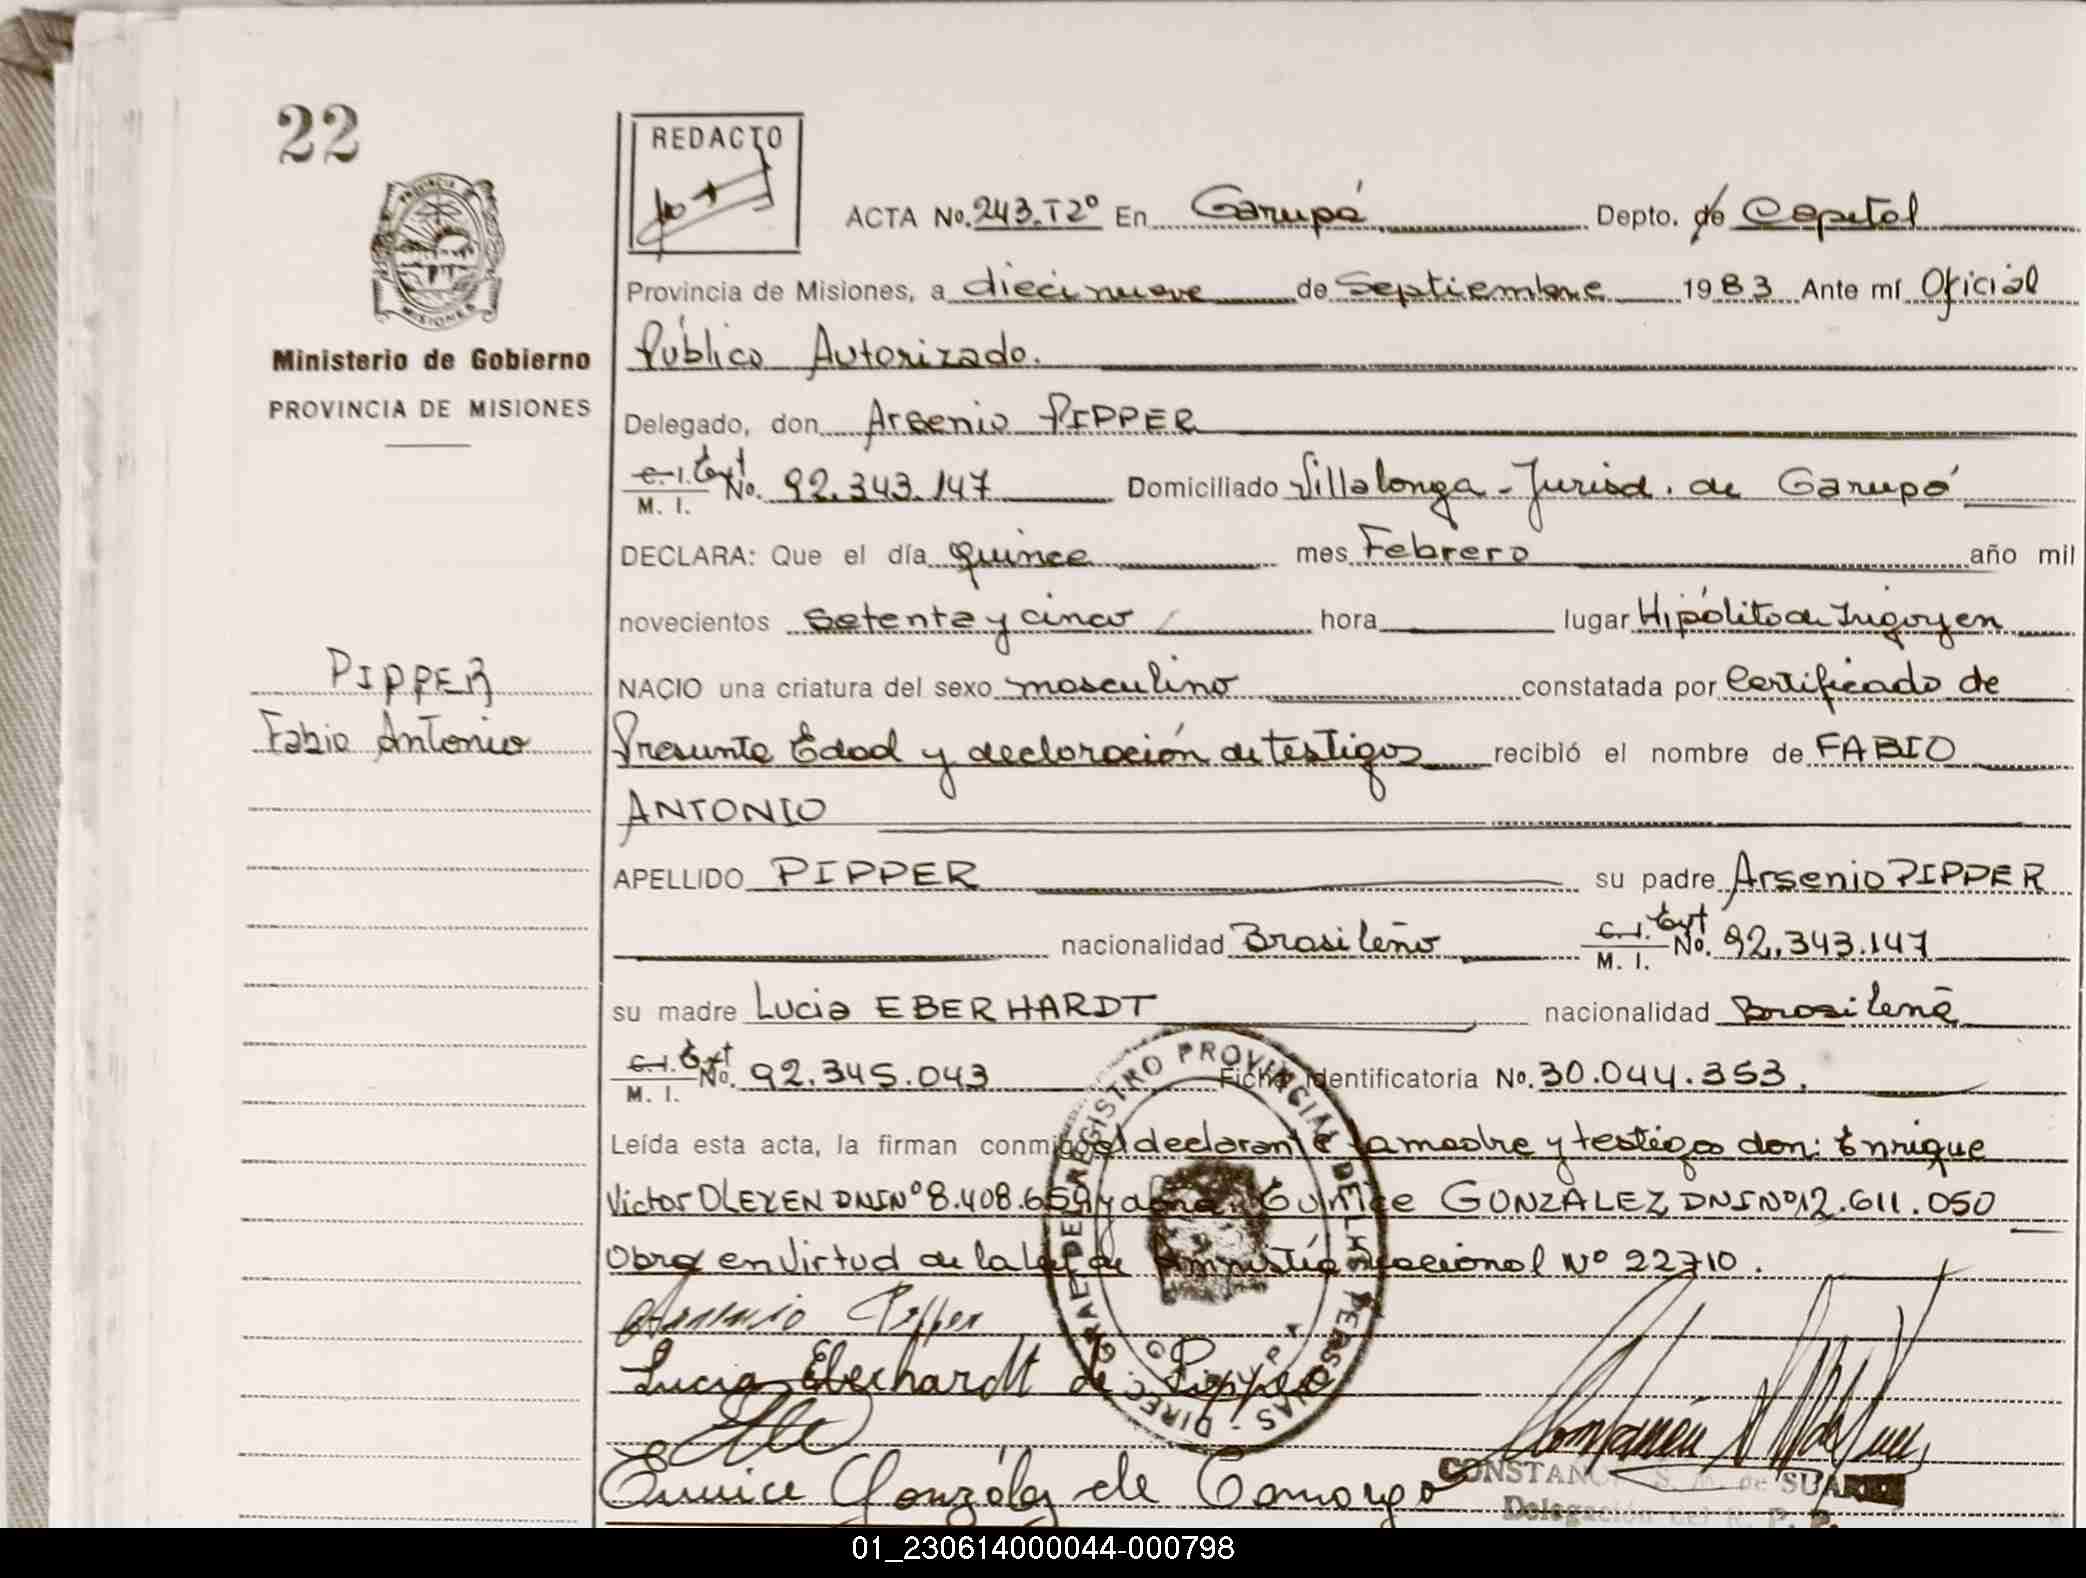 22
REDACTO
ACTA No. 243.T2º En Garupá Depto. de Capital
Provincia de Misiones, a diecinueve de Septiembre 1983 Ante mí Oficial
Público Autorizado.
Ministerio de Gobierno
PROVINCIA DE MISIONES
PROVINCIA DE
MISIONES
Delegado, don Arsenio PIPPER
C.I. Ext No. 92.343.147 Domiciliado Villalonga - Jurisd. de Garupá
M. I.
DECLARA: Que el día quince mes Febrero año mil
novecientos setenta y cinco hora lugar Hipólito de Irigoyen
PIPPER
Fabio Antonio
NACIO una criatura del sexo masculino constatada por Certificado de
Presunta Edad y declaración de testigos recibió el nombre de FABIO
ANTONIO
APELLIDO PIPPER su padre Arsenio PIPPER
nacionalidad Brasileño C.I. Ext No. 92.343.147
M. I.
su madre Lucia EBERHARDT nacionalidad Brasileña
C.I. Ext No. 92.345.043 Ficha Identificatoria No. 30.044.353.
M. I.
Leída esta acta, la firman conmigo el declarante la madre y testigos don: Enrique
Victor OLEXEN DNI Nº 8.408.659 y doña Eunice GONZALEZ DNI Nº 12.611.050
Obra en Virtud de la Ley de Amnistía Nacional Nº 22710.
Arsenio Pipper
Lucia Eberhardt de Pipper
Eunice González de Camargo
DIREC. GRAL. DE REGISTRO PROVINCIAL DE LAS PERSONAS
CONSTANC S. M. de SUAREZ
Delegación del R. P. P.
01_230614000044-000798